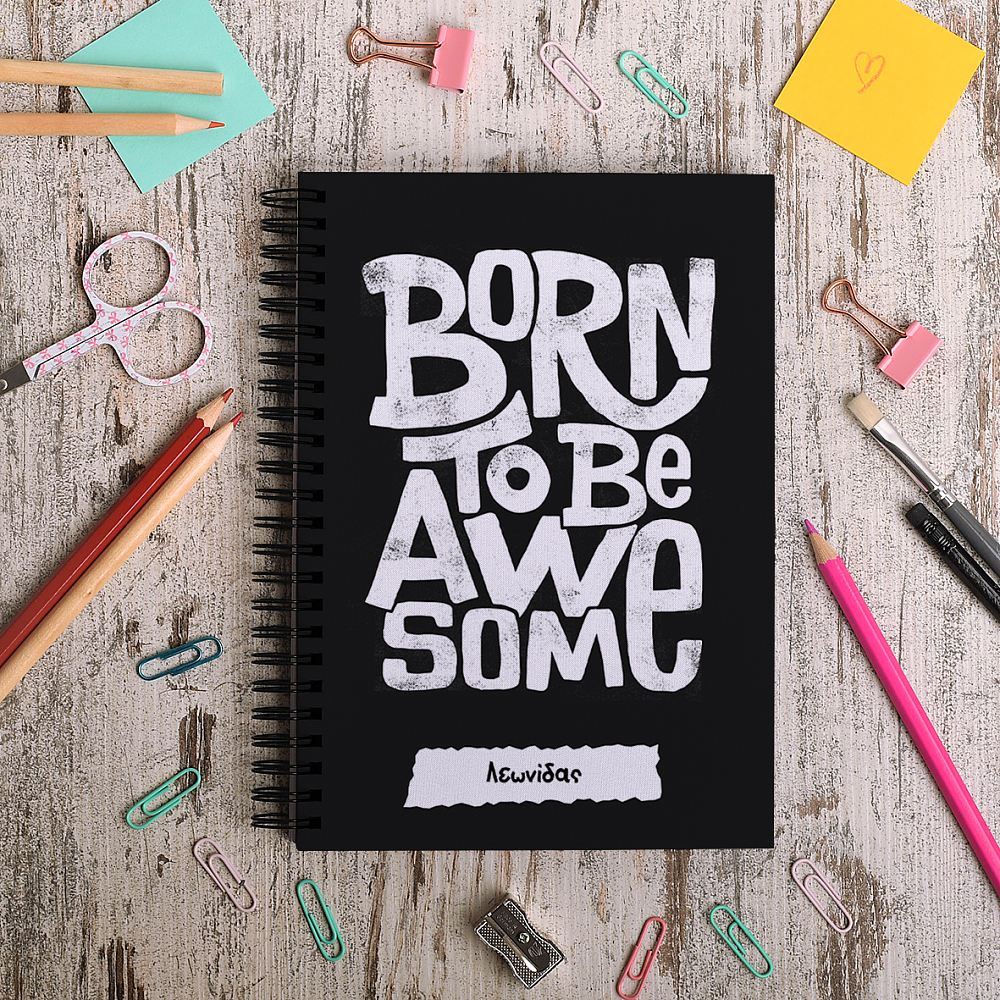 BORN
TO Be
AWe
SOMe
Λεωνίδας